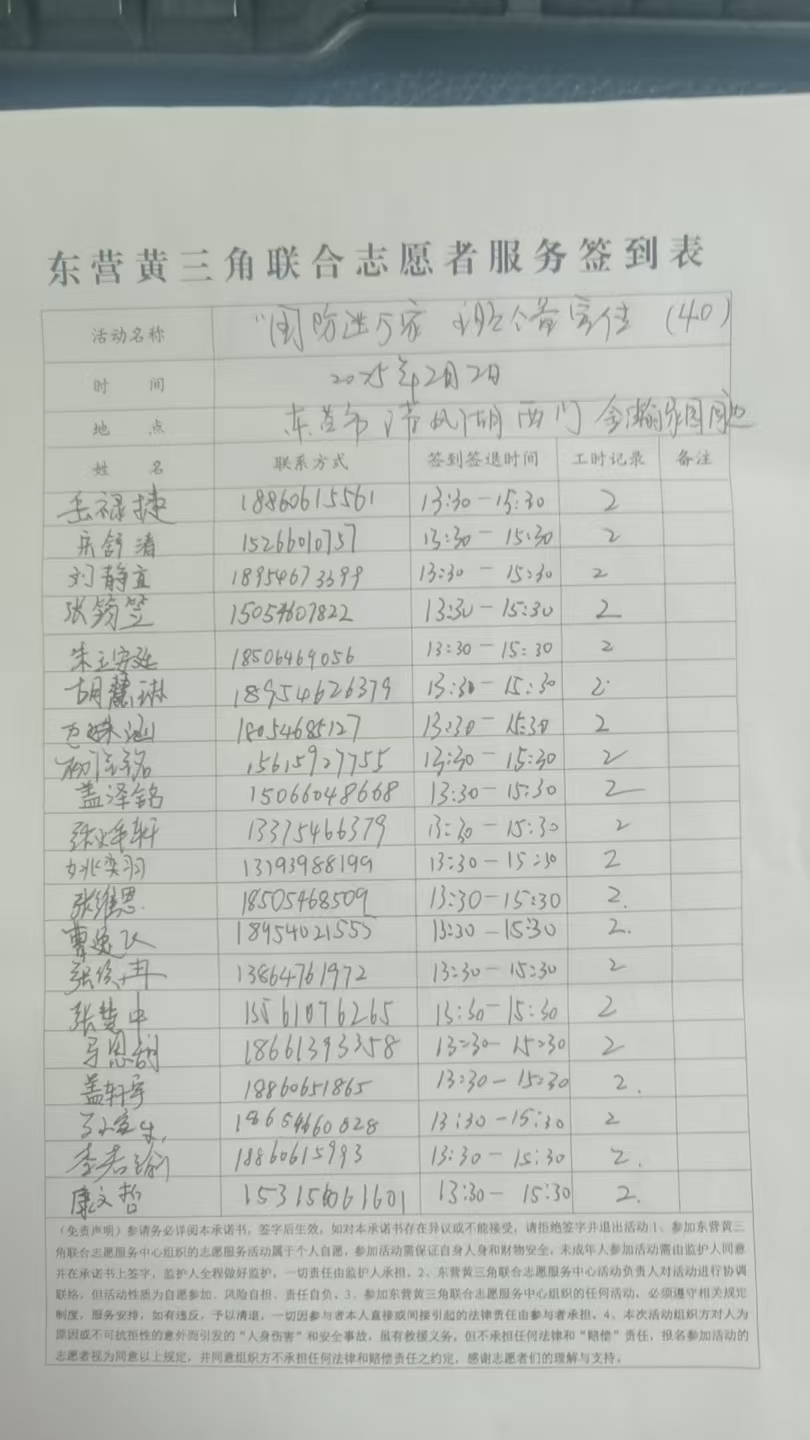 东营黄三角联合志愿者服务签到表
活动名称 "国防进万家 (40)
时 间 2025年2月2日
地 点 东营市清风湖西门
姓 名 联系方式 签到签退时间 工时记录 备注
岳禄捷 18860615561 13:30-15:30 2
舒清 15266010757 13:30-15:30 2
刘静宜 18954673399 13:30-15:30 2
张筠笠 15054607822 13:30-15:30 2
朱 18506469056 13:30-15:30 2
胡慧琳 18954626379 13:30-15:30 2
18054685127 13:30-15:30 2
15615927755 13:30-15:30 2
盖泽铭 15066048668 13:30-15:30 2
张烨轩 13375466379 13:30-15:30 2
姚奕羽 13793988199 13:30-15:30 2
张维思 18505468509 13:30-15:30 2.
曹 13:30-15:30 2.
张 13864761972 13:30-15:30 2
张楚中 13561076265 13:30-15:30 2
马恩 18661393358 13:30-15:30 2
盖轩宇 18860651865 13:30-15:30 2.
18654660828 13:30-15:30 2
李若瑜 18860615993 13:30-15:30 2.
康文哲 13:30-15:30 2.
(免责声明)参请务必详阅本承诺书,签字后生效,如对本承诺书存在异议或不能接受,请拒绝签字并退出活动1、参加东营黄三
角联合志愿服务中心组织的志愿服务活动属于个人自愿,参加活动需保证自身人身和财物安全,未成年人参加活动需由监护人同意
并在承诺书上签字,监护人全程做好监护,一切责任由监护人承担。2、东营黄三角联合志愿服务中心活动负责人对活动进行协调
联络,但活动性质为自愿参加、风险自担、责任自负。3、参加东营黄三角联合志愿服务中心组织的任何活动,必须遵守相关规定
制度,服务安排,如有违反,予以清退,一切因参与者本人直接或间接引起的法律责任由参与者承担。4、本次活动组织方对人为
原因或不可抗拒性的意外而引发的"人身伤害"和安全事故,虽有救援义务,但不承担任何法律和"赔偿"责任,报名参加活动的
志愿者视为同意以上规定,并同意组织方不承担任何法律和赔偿责任之约定,感谢志愿者们的理解与支持。